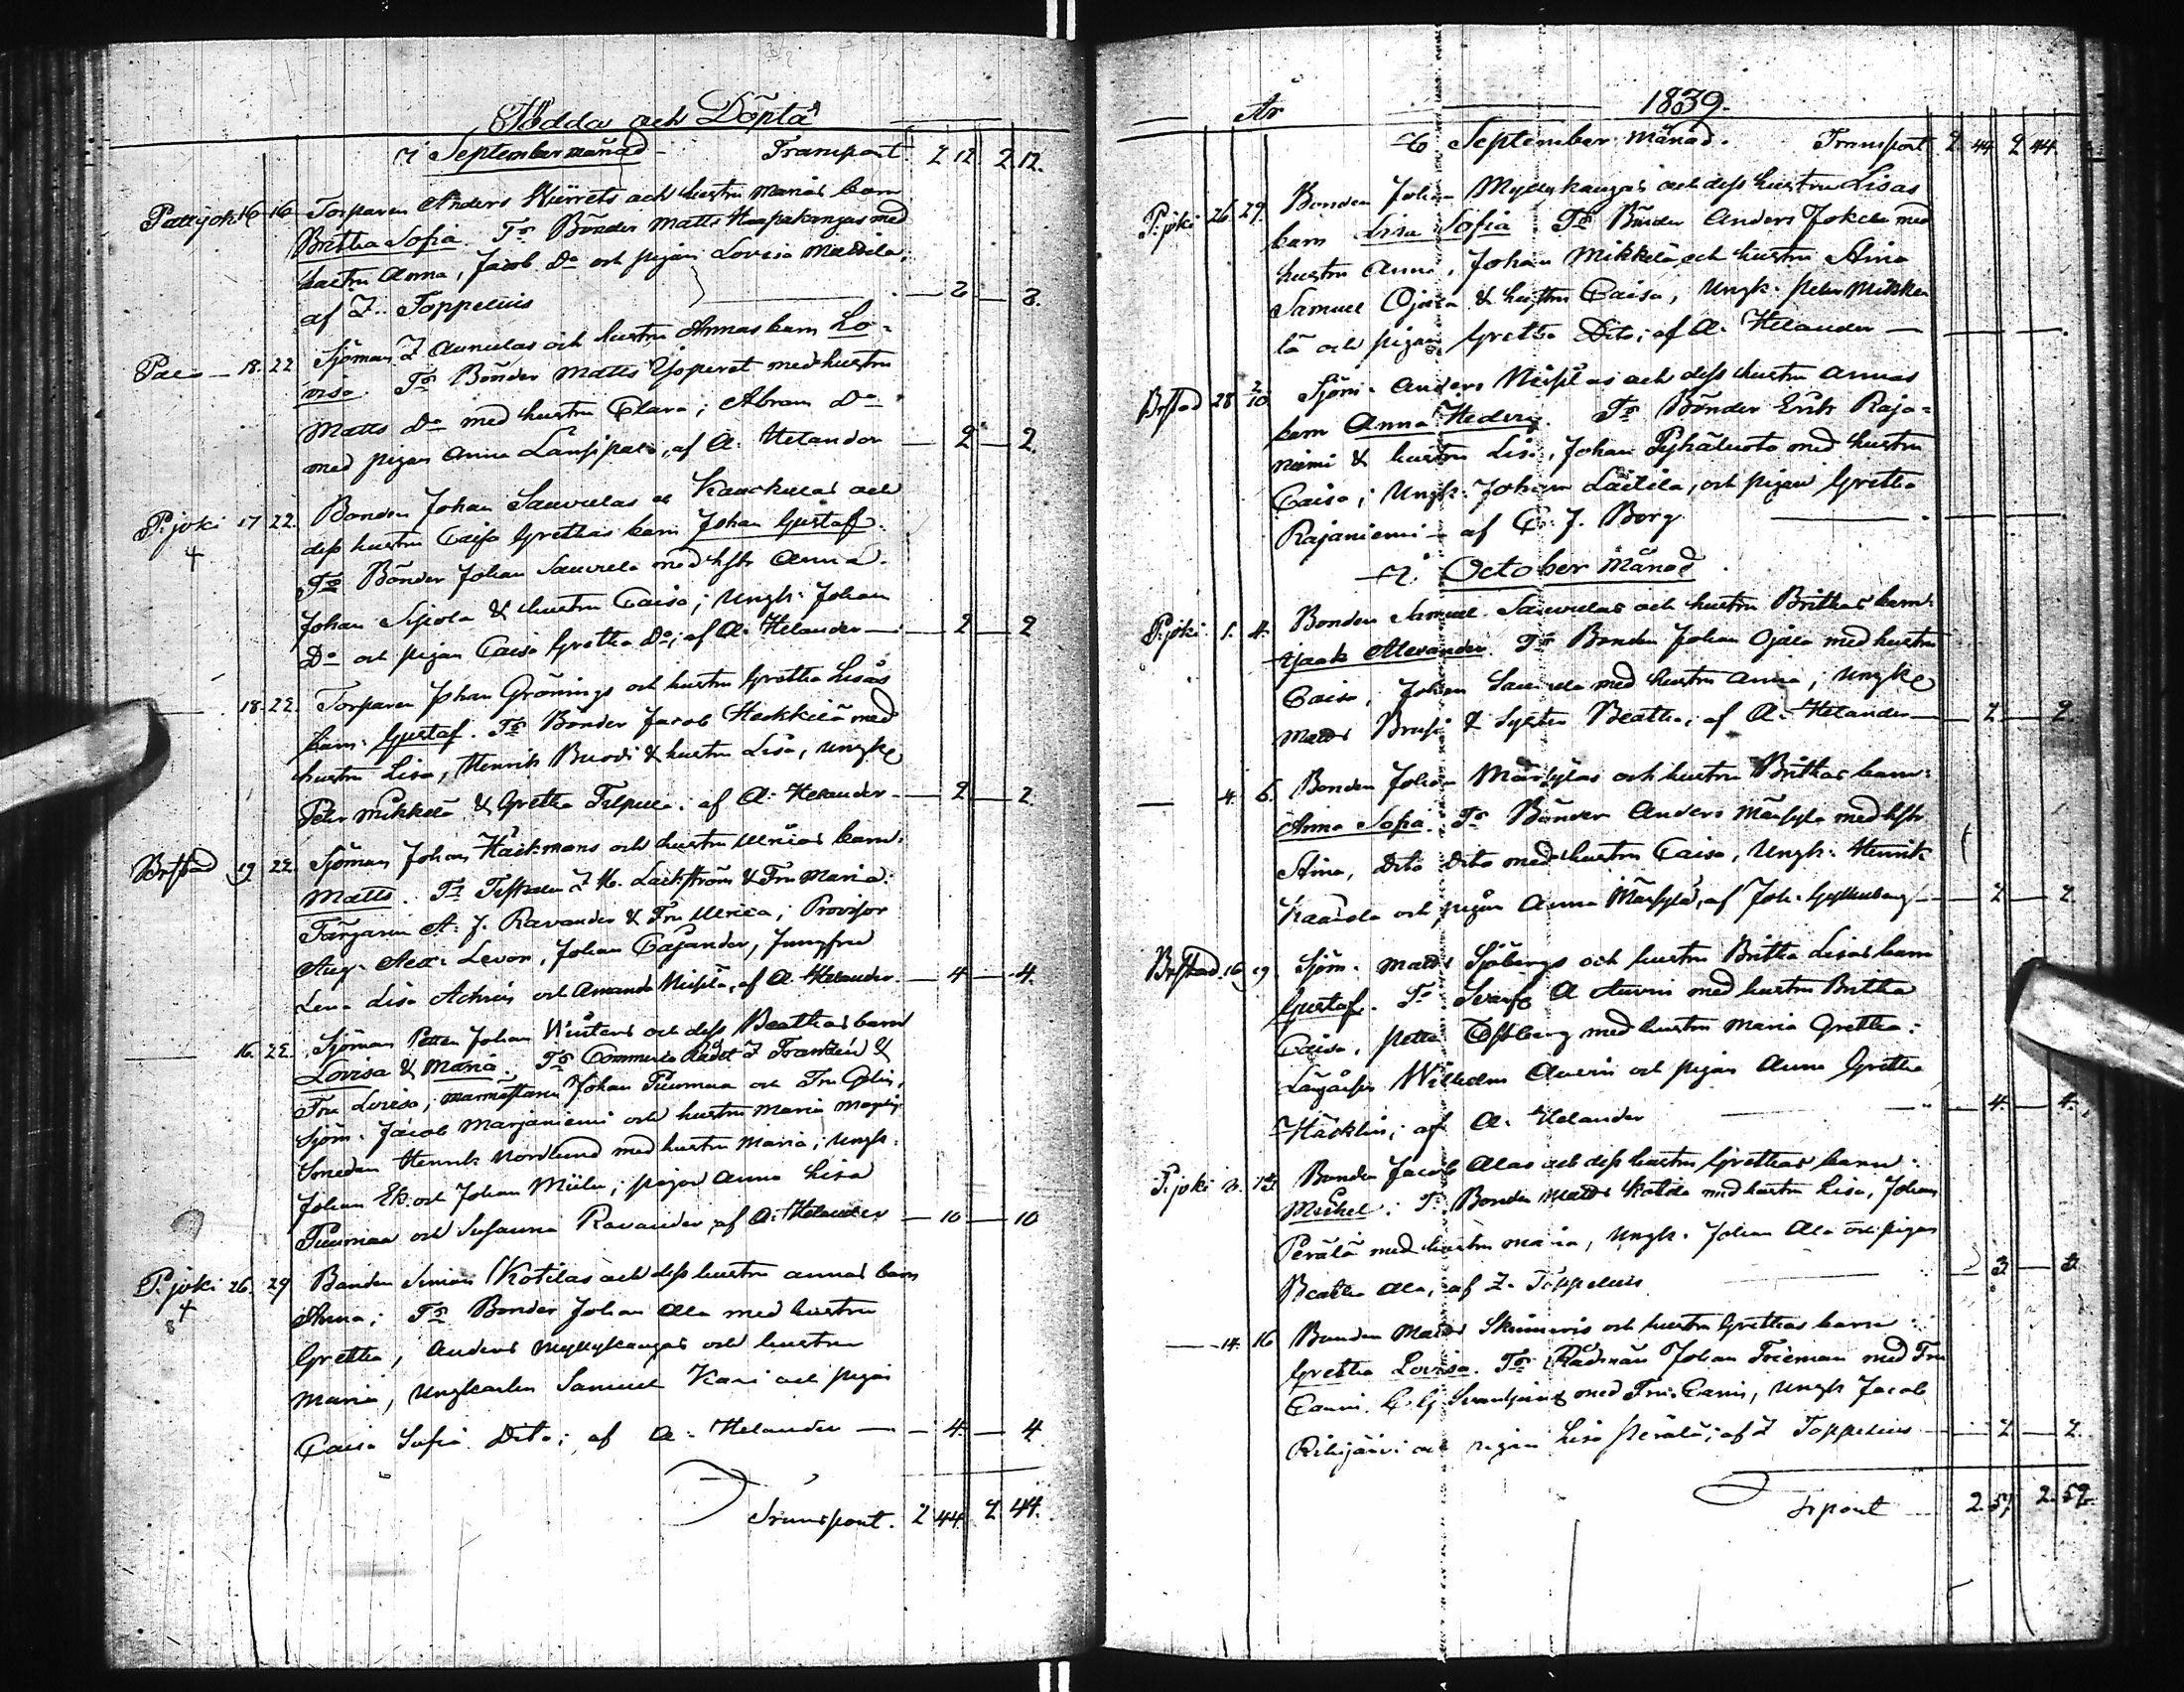 Födda och Döpta
i September månad Transport 2 12 2 12.
Pattijoki 16 16 Torparen Anders Kurrets och hustru Marias barn
Britha Sofia. Fr Bönder Matts Haapakangas med
hustru Anna, Jacob Do och pigan Lovisa Mattila,
af Z. Toppelius — 2 — 2.
Pao — 18. 22 Sjöman Z Aunulas och hustru Annas barn Lo-
visa. Fr Bönder Matts Yoperet med hustru
Matts Do med hustru Clara; Abram Do
med pigan Anna Länsipalo, af A. Helander — 2 — 2.
P.joki 17 22. Bonden Johan Sauvulas och
4 dess hustru Caisa Grethas barn Johan Gustaf.
Fr Bönder Johan Sauvula med hstr Anna.
Johan Sipola & hustru Caisa; Ungk. Johan
Do och pigan Caisa Gretha Do; af A. Helander — 2 — 2
— 18. 22. Torparen Johan Grönings och hustru Gretha Lisas
barn: Gustaf. Fr Bönder Jacob Heikkilä med
hustru Lisa, Henrik Buodi & hustru Lisa, Ungk
Petr Mikkelä & Gretha Filpula: af A. Helander — 2 — 2.
Brstad 19 22. Sjöman Johan Häckmans och hustru Ulricas barn:
Matts. Fr Z M. Lackström & Fru Maria.
Färgaren A. J. Ravander & Fru Ulrica; Provisor
Aug. Alex. Levon, Johan Cajander, Jungfru
Lena Lisa och Amanda Neiglä, af A. Helander — 4 — 4.
— 16. 22. Sjöman Petter Johan Winters och dess Beathas barn
Lovisa & Maria. Fr Commerce Rådet Z Franzén &
Fru Lovisa; Johan Puumaa och Fru
Sjöm. Jacob Marjaniemi och hustru Maria
Smeden Henrik Nordlund med hustru Maria; Ungk.
Johan Ek och Johan Miilu; pigor Anna Lisa
Puumaa och Susanna Ravander, af A. Helander — 10 — 10
P.joki 26. 29 Bonden Simon Kotilas och dess hustru Annas barn
4 Anna; Fr Bönder Johan Ala med hustru
8 Gretha, Anders Myllykangas och hustru
Maria, Ungkarlen Samuel Kari och pigan
Caisa Sofia Dito; af A. Helander — 4. — 4
Transport. 2 44. 2 44.
År 1839.
i September Månad. Transport 2 44 2 44.
P.joki 26. 29. Bonden Johan Myllykangas och dess hustru Lisas
barn Lisa Sofia. Fr Bönder Anders Jokela med
hustru Anna, Johan Mikkelä och hustru Stina
Samuel Ojala & hustru Caisa, Ungk. Peter Mikke
lä och pigan Gretha Dito; af A. Helander —
Brstad 28 2/10 Sjöm. Anders Neiglas och dess hustru Annas
barn Anna Hedvig. Fr Bönder Erik Raja-
niemi & hustru Lisa, Johan Pyhäluoto med hustru
Caisa; Ungk. Johan Laitila, och pigan Gretha
Rajaniemi — af C. J. Borg —
i October Månad
P.joki 1. 4. Bonden Samuel Sauvulas och hustru Brithas barn:
Isaak Alexander. Fr Bonden Johan Ojala med hustru
Caisa, Johan Sauvula med hustru Anna; Ungk
Matts Brusi & Syster Beatha; af A. Helander — 2 — 2.
— 4. 6. Bonden Johan Märsyläs och hustru Brithas barn:
Anna Sofia. Fr Bönder Anders Märsylä med hstr
Stina, Dito Dito med hustru Caisa, Ungk. Henrik
Kaarela och pigan Anna Märsylä, af Joh. Gyllenberg — 2 — 2
Brstad. 16 19. Sjöm. Matts Sjöbergs och hustru Britha Lisas barn
Gustaf. Fr A Auvin med hustru Britha
Caisa, Petter Östberg med hustru Maria Gretha.
Wilhelm Auvin och pigan Anna Gretha
Häcklin; af A. Helander — 4. — 4.
P.joki Bonden Jacob Alas och dess hustru Grethas barn:
Michel. Fr Bonden Matts Kotila med hustru Lisa, Johan
Perälä med hustru Maria, Ungk. Johan Ala och pigan
Beatha Ala, af Z. Toppelius — 3 — 3
— 14. 16 Bonden Matts och hustru Grethas barn:
Gretha Lovisa. Fr Rådman Johan Frieman med Fru
Carin, C. G. med Fru Carin, Ungk Jacob
Rihijärvi och pigan Lisa Perälä; af Z Toppelius — 2 — 2.
Trsport 2 57 2. 57